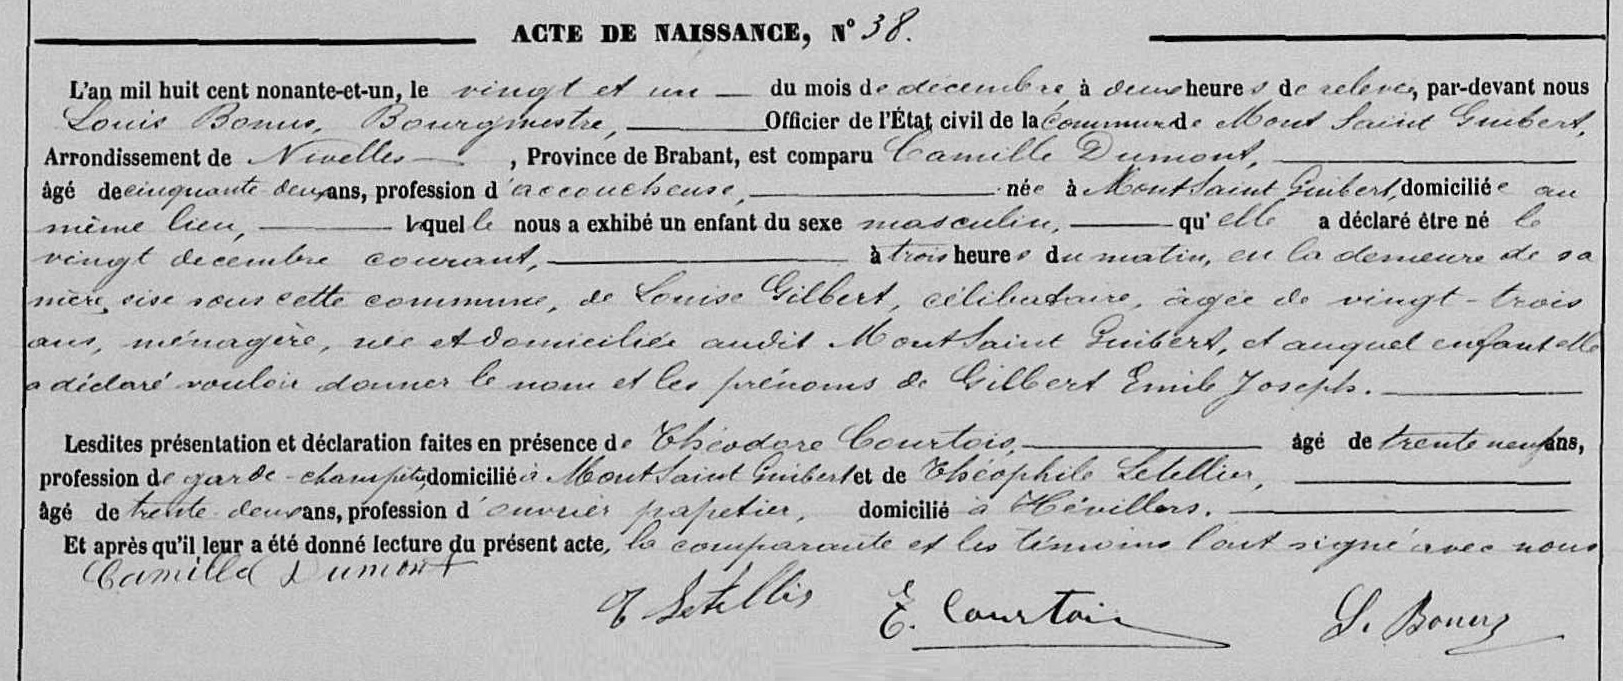 ACTE DE NAISSANCE, N° 38.
L'an mil huit cent nonante-et-un, le vingt et un du mois de décembre, à deux heures de relevée, par-devant nous
Louis Bonus, Bourgmestre, Officier de l'État civil de la Commune de Mont Saint Guibert,
Arrondissement de Nivelles, Province de Brabant, est comparu Camille Dumont,
âgé de cinquante-deux ans, profession d'accoucheuse, née à Mont Saint Guibert, domiciliée au
même lieu, laquelle nous a exhibé un enfant du sexe masculin, qu'elle a déclaré être né le
vingt decembre courant, à trois heures du matin, en la demeure de sa
mère, sise sous cette commune, de Louise Gilbert, célibataire, âgée de vingt-trois
ans, ménagère, née et domiciliée audit Mont Saint Guibert, et auquel enfant elle
a déclaré vouloir donner le nom et les prénoms de Gilbert Emile Joseph.
Lesdites présentation et déclaration faites en présence de Théodore Courtois, âgé de trente neuf ans,
profession de garde-champêtre, domicilié à Mont Saint Guibert et de Théophile Letellier,
âgé de trente-deux ans, profession d'ouvrier papetier, domicilié à Hévillers.
Et après qu'il leur a été donné lecture du présent acte, la comparante et les témoins l'ont signé avec nous
Camille Dumont
T Letellier T. Courtois L. Bonus